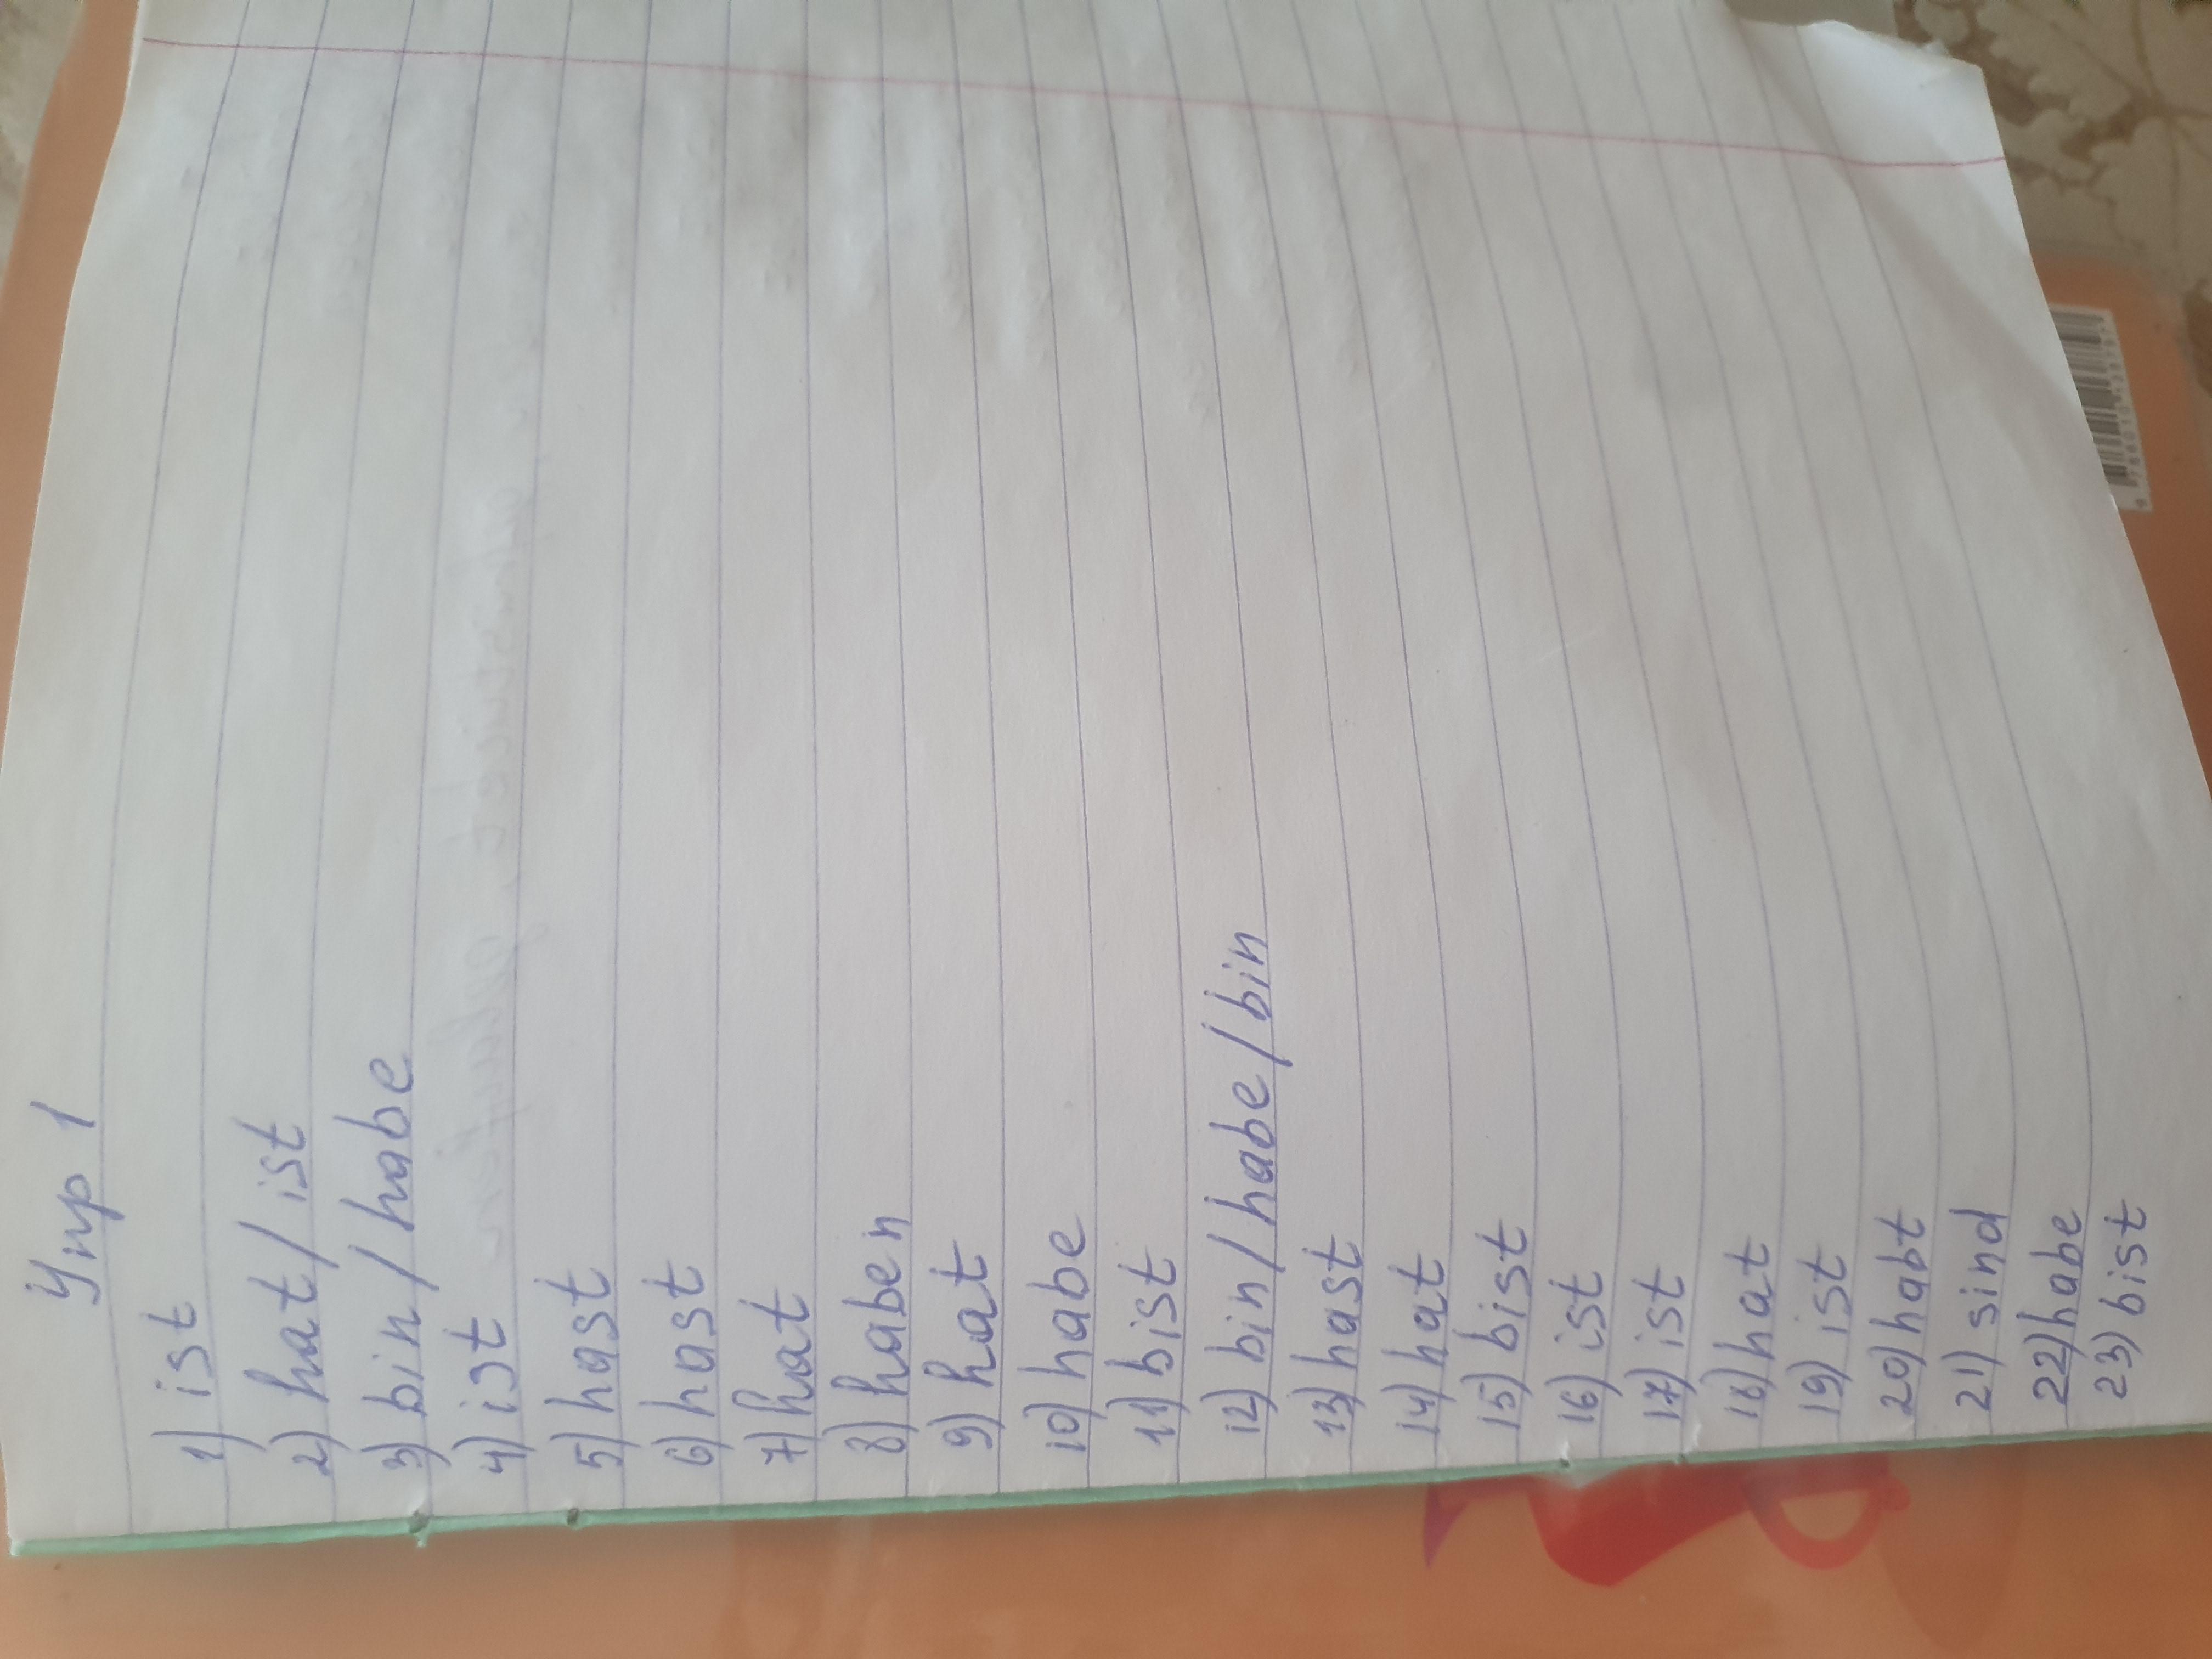 Упр 1
1) ist
2) hat/ist
3) bin/habe
4) ist
5) hast
6) hast
7) hat
8) haben
9) hat
10) habe
11) bist
12) bin/habe/bin
13) hast
14) hat
15) bist
16) ist
17) ist
18) hat
19) ist
20) habt
21) sind
22) habe
23) bist